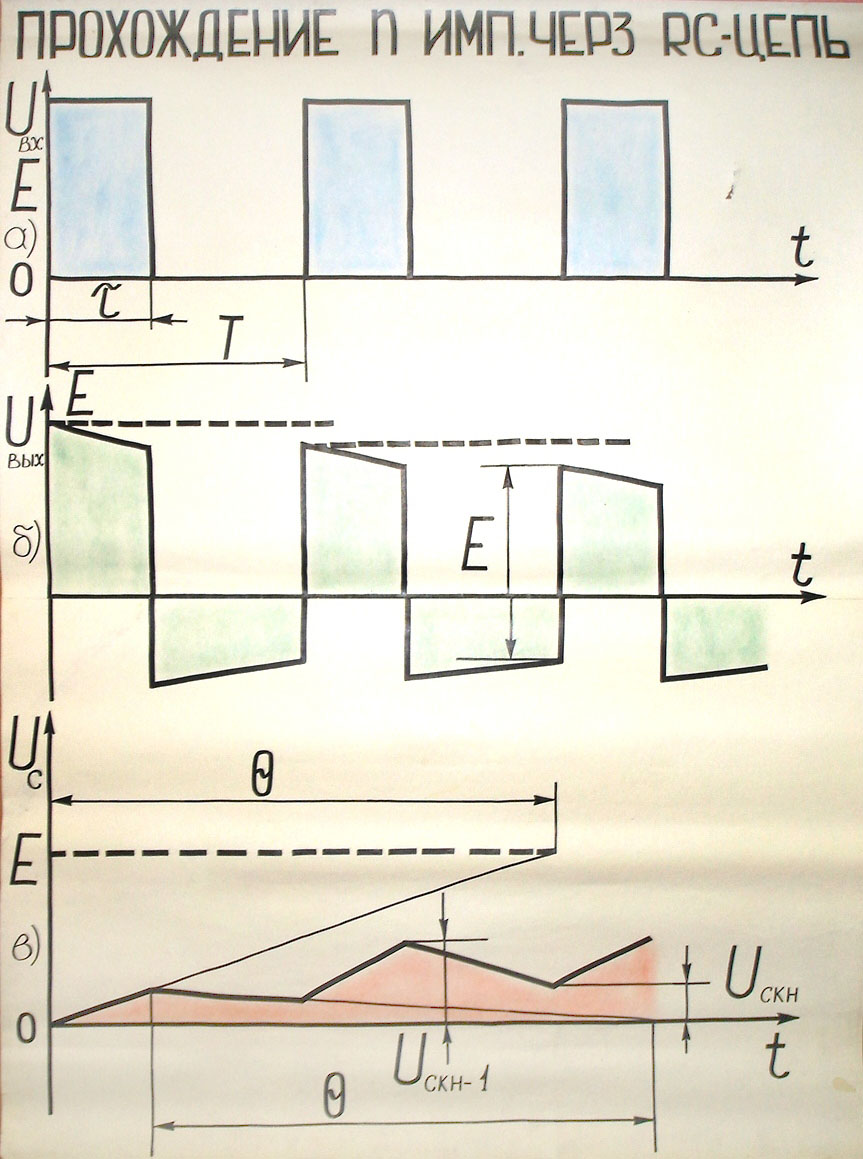 ПРОХОЖДЕНИЕ П ИМП.ЧЕРЗ RC-ЦЕПЬ
Uвх
E
а)
0
t
τ
T
E
Uвых
б)
E
t
Uс
θ
E
в)
0
Uскн
t
Uскн-1
θ